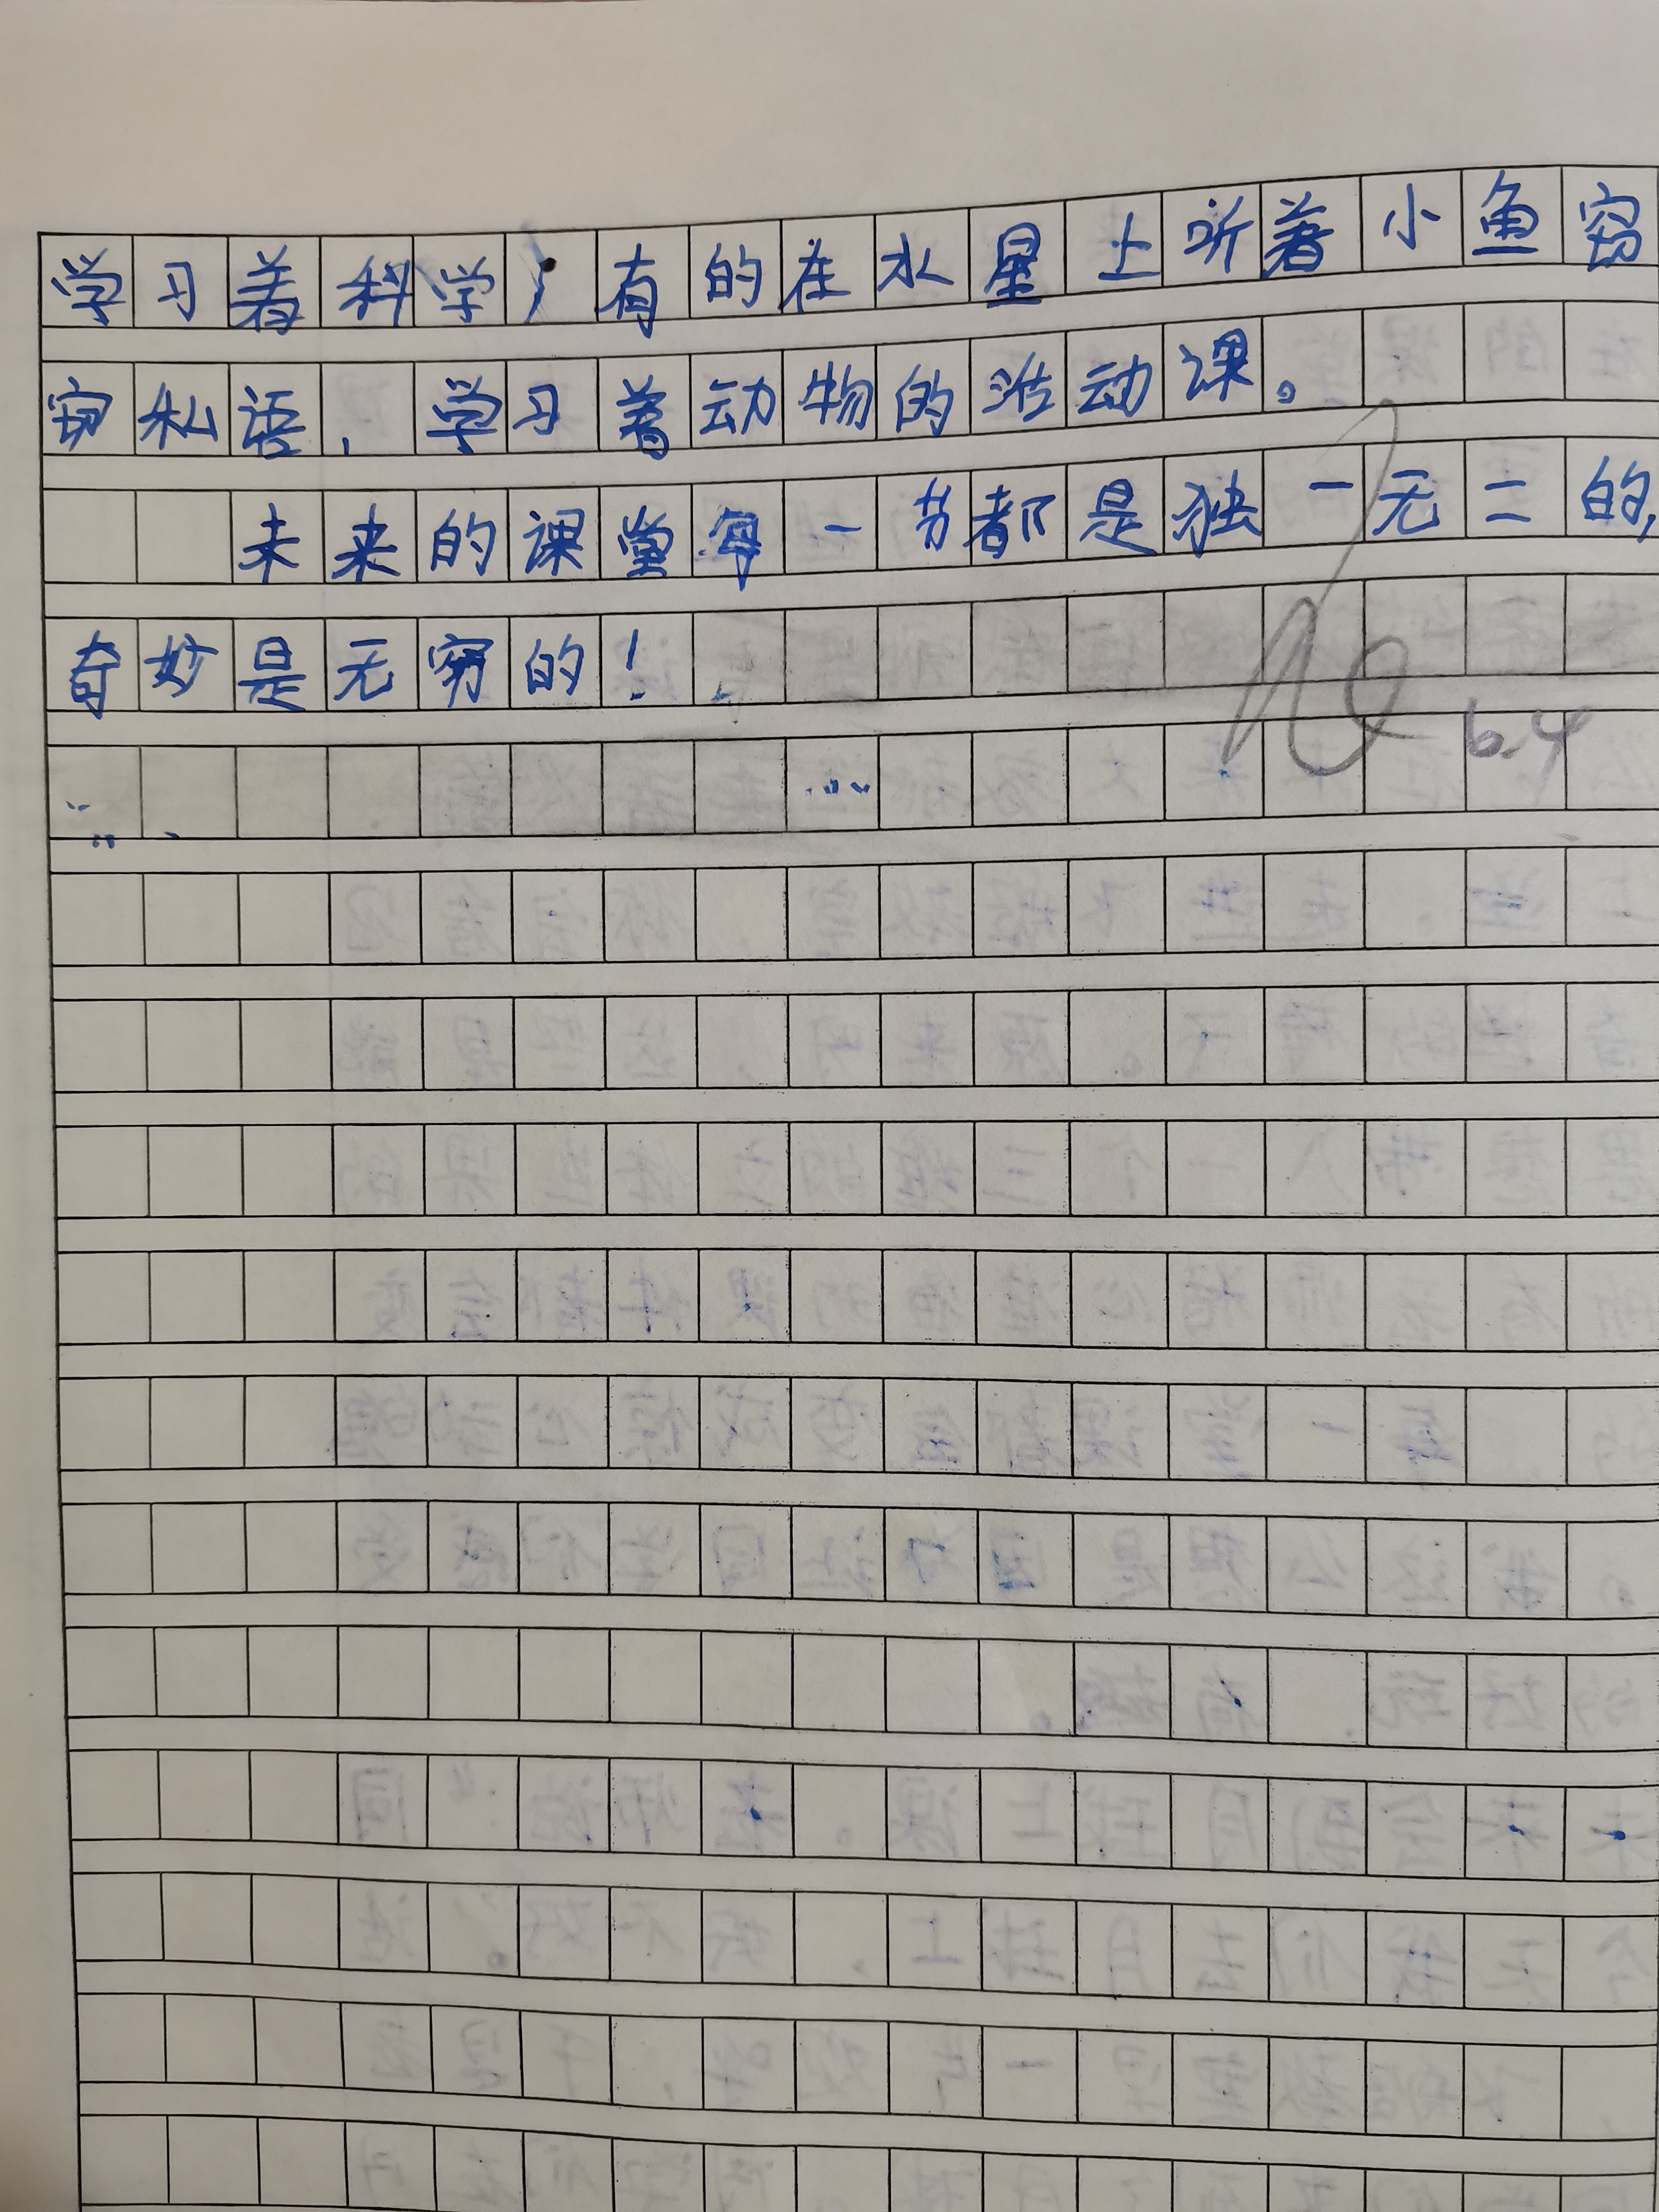 学习着科学，有的在水星上听着小鱼窃
窃私语，学习着动物的活动课。
未来的课堂每一节都是独一无二的，
奇妙是无穷的！
6.4